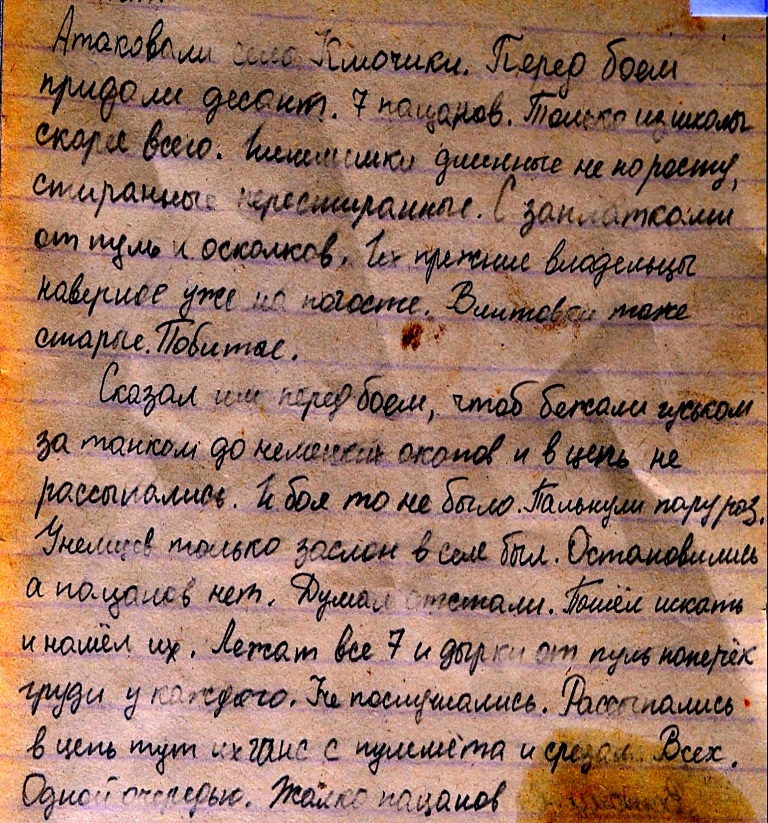 Атаковали село Ключики. Перед боем
придали десант. 7 пацанов. Только из школы
скорее всего. Шинельки длинные не по росту,
стиранные перестиранные. С заплатками
от пуль и осколков. Их прежние владельцы
наверное уже на погосте. Винтовки тоже
старые. Побитые.
Сказал им перед боем, чтоб бежали гуськом
за танком до немецких окопов и в цепь не
рассыпались. И боя то не было. Пальнули пару раз.
У немцев только заслон в селе был. Остановились
а пацанов нет. Думал отстали. Пошёл искать
и нашёл их. Лежат все 7 и дырки от пуль поперёк
груди у каждого. Не послушались. Рассыпались
в цепь тут их ганс с пулемёта и срезал. Всех.
Одной очередью. Жалко пацанов